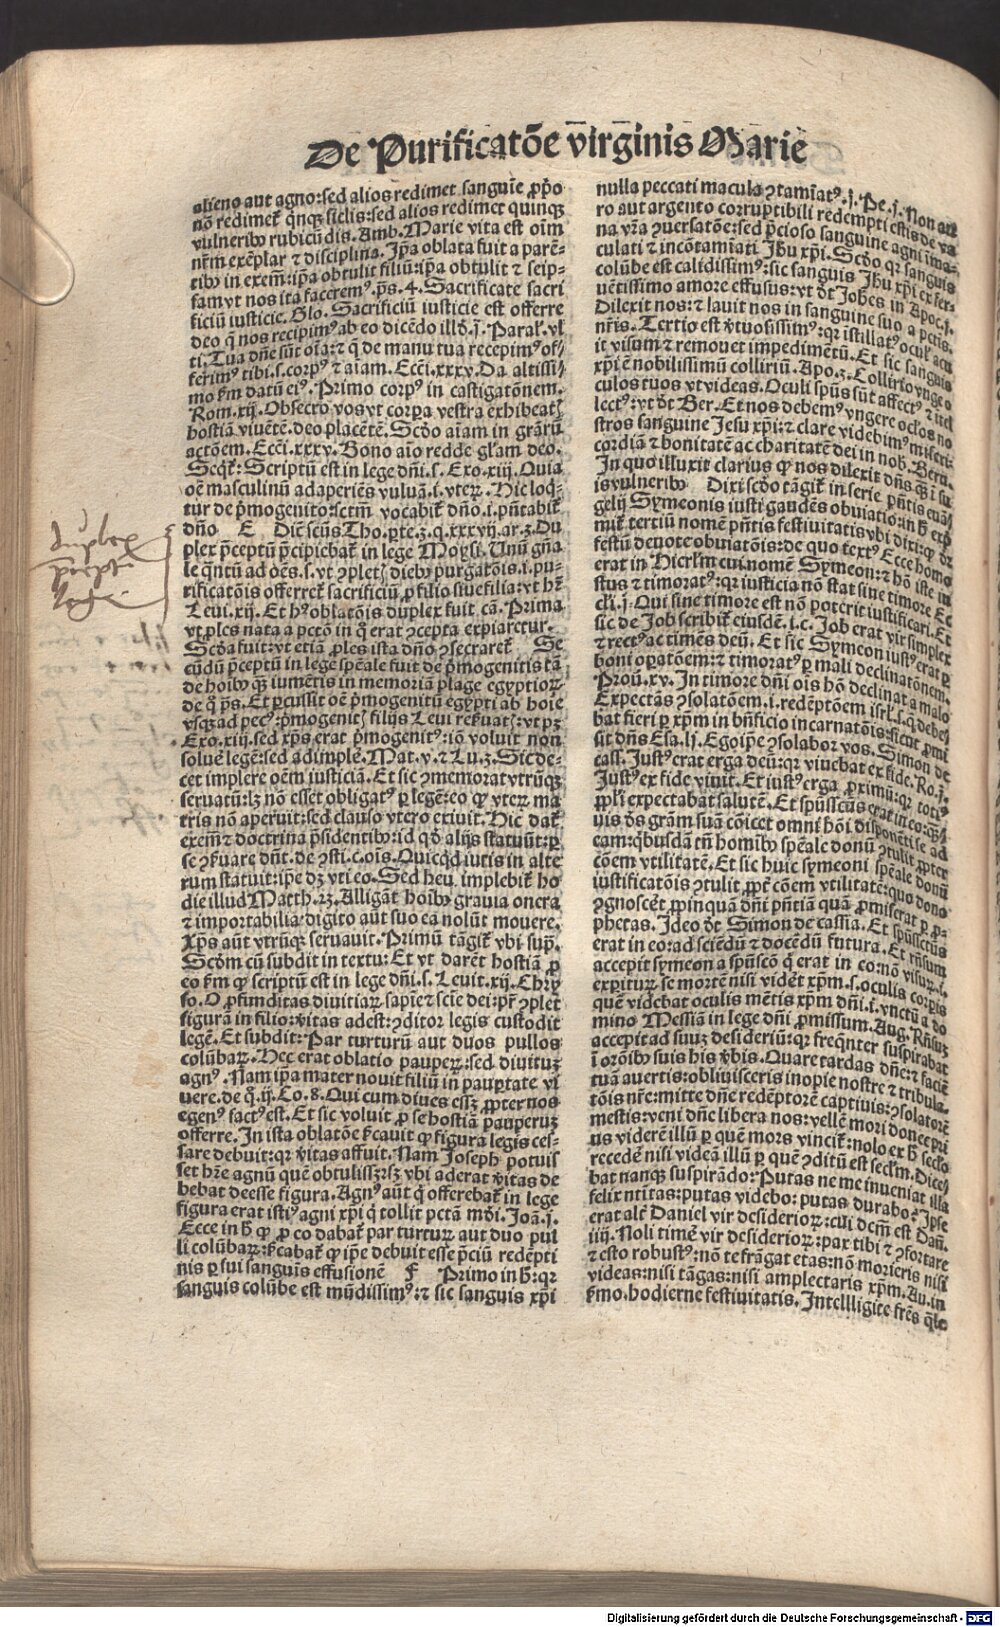 De Purificatõe v̄irginis Marie
alieno aut agno: sed alios redimet sanguīe ꝓp̄o
nō redimeř qnꝗ siclis: sed alios redimet quinꝗ
vulneribꝰ rubicūdis. Amb. Marie vita est oīm
nr̄m exēplar ⁊ disciplina. Ip̄a oblata fuit a parē-
tibꝰ in exem̄: ip̄a obtulit filiū: ip̄a obtulit ⁊ seip-
sam vt nos ita faceremꝰ. ps. 4. Sacrificate sacri
ficiū iusticie. Glo. Sacrificiū iusticie est offerre
deo q̄ nos recipimꝰ ab eo dicēdo illđ. j. Paral. vl
ti. Tua dn̄e sūt oīa: ⁊ q̄ de manu tua recepimꝰ of/
ferimꝰ tibi. s. corpꝰ ⁊ aīam. Ecci. xxxv. Da altissi/
mo ẜm datū eiꝰ. Primo corpꝰ in castigatōnem.
Rom. xij. Obsecro vos vt corpa vestra exhibeatꝭ
hostiā viuētē. deo placētē. Scđo aīam in gr̄arū
actōem. Ecci. xxxv. Bono aīo redde gl'am deo.
Seqť: Scriptū est in lege dn̄i. s. Exo. xiij. Quia
oē masculinū adaperiēs vuluā. i. vterꝝ. Hic loq̄-
tur de p̄mogenito: sctm̄ vocabiť dn̄o. i. pn̄tabiť
dn̄o E Dic̄ scūs Tho. pte. 3. q. xxxvij. ar. 3. Du
plex p̄ceptū p̄cipiebať in lege Moysi. Unū gn̄a
le q̄ntū ad oēs. s. vt ꝯpletꝭ diebꝰ purgatōis. i. pu-
rificatōis offerreť sacrificiū ꝓ filio siue filia: vt hr̄
Leui. xij. Et hꝰ oblatōis duplex fuit cā. Prima
vt ꝓles nata a pctō in q̄ erat ꝯcepta expiaretur.
Scđa fuit: vt etiā ꝓles ista dn̄o ꝯsecrareť Se
cūdū p̄ceptū in lege sp̄eale fuit de p̄mogenitis tā
de hoībꝰ ꝗ̄ iumētis in memoriā plage egyptioꝝ
de q̄ ps. Et percussit oē p̄mogenitū egypti ab hoīe
vsꝗ ad pecꝰ: p̄mogenitꝭ filijs Leui reẜuatꝭ: vt pꝫ
Exo. xiij. sed xp̄s erat p̄mogenitꝰ: iō voluit non
soluē legē: sed adimplē. Mat. v. ⁊ Lu. 3. Sic de-
cet implere oēm iusticiā. Et sic ꝯmemorat vtrūꝗ
seruatū: lꝫ nō esset obligatꝰ ꝑ legē: eo ꝙ vterꝝ ma
tris nō aperuit: sed clauso vtero exiuit. Hic dať
exem̄ ⁊ doctrina p̄sidentibꝰ: id qđ alijs statuūt: ꝑ
se ꝯẜuare dn̄t. de ꝯsti. c. oīs. Quicꝗd iuris in alte
rum statuit: ip̄e dꝫ vti eo. Sed heu implebiť ho
die illud Matth. 23. Alligāt hoībꝰ grauia onera
⁊ importabilia: digito aūt suo ea nolūt mouere.
Xp̄s aūt vtrūꝗ seruauit. Primū tāgiť vbi sup̄.
Scđm cū subdit in textu: Et vt darēt hostiā ꝓ
eo ẜm ꝙ scriptū est in lege dn̄i. s. Leuit. xij. Chry
so. O ꝓfunditas diuitiaꝝ sapīe ⁊ scīe dei: pr̄ ꝯplet
figurā in filio: v̄itas adest: ꝯditor legis custodit
legē. Et subdit: Par turturū aut duos pullos
colūbaꝝ. Hec erat oblatio pauperꝝ: sed diuitum
agnꝰ. Nam ip̄a mater nouit filiū in paupertate vi
uere. de q̄. ij. Co. 8. Qui cum diues essꝫ ꝓpter nos
egenꝰ factꝰ est. Et sic voluit ꝓ se hostiā pauperuꝫ
offerre. In ista oblatōe ẜcauit ꝙ figura legis ces-
sare debuit: qꝛ v̄itas affuit. Nam Joseph potuis
set hr̄e agnū quē obtulissꝫ: sꝫ vbi aderat v̄itas de
bebat deesse figura. Agnꝰ aūt q̄ offerebať in lege
figura erat istiꝰ agni xp̄i q̄ tollit pctā mđi. Joā. j.
Ecce in hͦ ꝙ ꝓ eo dabať par turturꝝ aut duo pul
li colūbaꝝ: ẜcabať ꝙ ip̄e debuit esse p̄ciū redēpti
nis ꝑ sui sanguīs effusionē F Primo in hͦ: qꝛ
sanguis colūbe est mūdissimꝰ: ⁊ sic sanguis xp̄i
nulla peccati macula ꝯtamīatꝰ. j. Pe. j. Non au
ro aut argento corruptibili redempti estis de va
na vr̄a ꝯuersatōe: sed p̄cioso sanguine agni īma-
culati ⁊ incōtamīati Jhu xp̄i. Scđo qꝛ sanguis
colūbe est calidissimꝰ: sic sanguis Jhu xp̄i ex fer-
uētissimo amore effusus: vt đt Johēs in Apoc. j.
Dilexit nos: ⁊ lauit nos in sanguine suo a pctis
nr̄is. Tertio est v̄tuosissimꝰ: qꝛ īstillatꝰ oculꝭ acu
it visum ⁊ remouet impedimētū. Et sic sanguis
xp̄i ē nobilissimū colliriū. Apo. 3. Collirio vnge o
culos tuos vt videas. Oculi sp̄us sūt affectꝰ ⁊ itel
lectꝰ: vt đt Ber. Et nos debemꝰ vngere oc̄los no
stros sanguine Jesu xp̄i: ⁊ clare videbimꝰ miseri-
cordiā ⁊ bonitatē ac charitatē dei in nob. Bern.
In quo illuxit clarius ꝙ nos dilexit dn̄s ꝗ̄ ī su
is vulneribꝰ Dixi scđo tāgiť in serie pn̄tis euā/
gelij Symeonis iusti gaudēs obuiatio: in hͦ exp
miť tertiū nomē pn̄tis festiuitatis vbi dixi: ꝙ đr
festū deuote obuiatōis: de quo textꝰ Ecce homo
erat in Hierl'm cui nomē Symeon: ⁊ hō iste iu
stus ⁊ timoratꝰ: qꝛ iusticia nō stat sine timore Ec
cli. j. Qui sine timore est nō poterit iustificari. Et
sic de Job scribiť eiusdē. i. c. Job erat vir simplex
⁊ rectꝰ ac timēs deū. Et sic Symeon iustꝰ erat ꝑ
boni oꝑatōem: ⁊ timoratꝰ ꝑ mali declinatōnem.
Prou. xv. In timore dn̄i oīs hō declinat a malo
Expectās ꝯsolatōem. i. redēptōem isrl'. s. q̄ debe/
bat fieri ꝑ xp̄m in bn̄ficio incarnatōis: sicut ꝓmi
sit dn̄s Esa. lj. Ego ip̄e ꝯsolabor vos. Simon de
cass. Justꝰ erat erga deū: qꝛ viuebat ex fide. Ro. j.
Justꝰ ex fide viuit. Et iustꝰ erga ꝓximū: qꝛ totiꝰ
ꝓpli expectabat salutē. Et sp̄usscūs erat in eo: ꝗ̄/
uis đs gr̄am suā cōicet omni hōi disponēti se ad
eam: qbusdā tn̄ homībꝰ sp̄eale donū ꝯtulit ꝓpter
cōem vtilitatē. Et sic huic symeoni sp̄eale donū
iustificatōis ꝯtulit ꝓpť cōem vtilitatē: quo dono
ꝯgnosceť ꝓpinquā dn̄i pn̄tiā quā ꝓmiserat ꝑ ꝓ-
phetas. Ideo đt Simon de cassia. Et sp̄ussctūs
erat in eo: ad sciēdū ⁊ docēdū futura. Et rn̄sum
accepit symeon a sp̄uscō q̄ erat in eo: nō visuꝝ. i.
experturꝝ se mortē nisi vidēt xp̄m. s. oculis corꝑis
quē videbat oculis mētis xp̄m dn̄i. i. vnctū a do
mino Messiā in lege dn̄i ꝓmissum. Aug. Rn̄suꝫ
accepit ad suuꝫ desideriū: qꝛ freqnter suspirabat
ī orōibꝰ suis his v̄bis. Quare tardas dn̄e: ⁊ faciē
tuā auertis: obliuisceris inopie nostre ⁊ tribula-
tōis nr̄e: mitte dn̄e redēptorē captiuis: ꝯsolatorē
mestis: veni dn̄e libera nos: vellē mori donec pri
us viderē illū ꝑ quē mors vinciť: nolo ex hͦ seclo
recedē nisi videā illū ꝑ quē ꝯditū est secl'm. Dice/
bat nanꝗ suspirādo: Putas ne me inueniat illa
felix ntitas: putas videbo: putas durabo? Ipse
erat alē Daniel vir desiderioꝝ: cui dcm̄ est Dań.
iiij. Noli timē vir desiderioꝝ: pax tibi ⁊ ꝯfortare
⁊ esto robustꝰ: nō te frāgat etas: nō morieris nisi
videas: nisi tāgas: nisi amplectaris xp̄m. Au. in
ẜmo. hodierne festiuitatis. Intelligite fr̄es q̄le
Digitalisierung gefördert durch die Deutsche Forschungsgemeinschaft - DFG